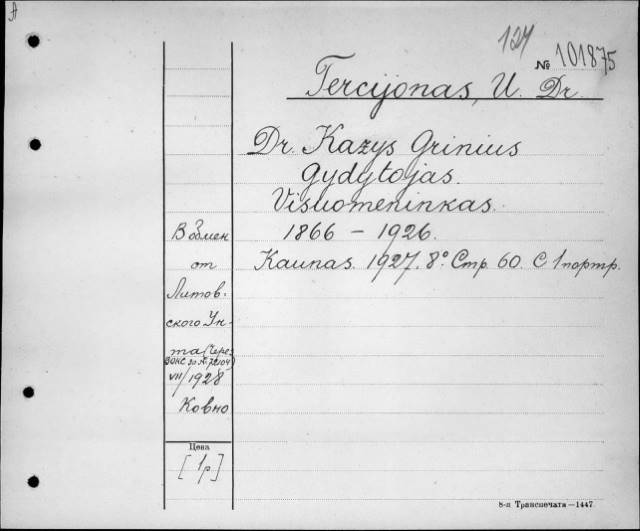 A
127
№ 101875
Tercijonas, U. Dr.
Dr. Kazys Grinius
gydytojas.
Visuomeninkas.
1866 – 1926.
Kaunas. 1927. 8° Стр. 60. С 1 портр.
В обмен
от
Литов-
ского Ун-
та (чере
ВОКС
VII/1928
Ковно
Цена
[1р.]
8-я Транспечати—1447.